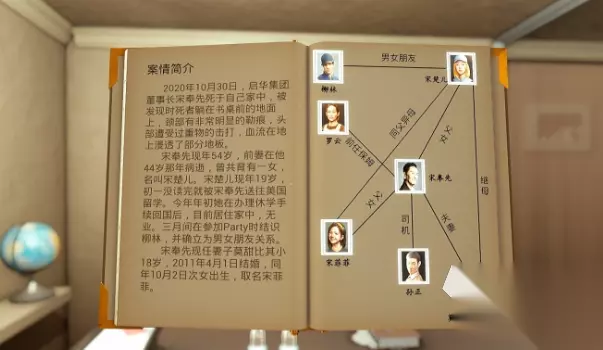 案情简介
2020年10月30日，启华集团
董事长宋奉先死于自己家中，被
发现时死者躺在书桌前的地面
上，颈部有非常明显的勒痕，头
部遭受过重物的击打，血流在地
上浸透了部分地板。
宋奉先现年54岁，前妻在他
44岁那年病逝，曾共育有一女，
名叫宋楚儿。宋楚儿现年19岁，
初一没读完就被宋奉先送往美国
留学。今年年初她在办理休学手
续回国后，目前居住家中，无
业。三月间在参加Party时结识
柳林，并确立为男女朋友关系。
宋奉先现任妻子莫甜比其小
18岁，2011年4月1日结婚，同
年10月2日次女出生，取名宋菲
菲。
男女朋友
柳林
宋楚儿
罗云
同父异母
父女
前任保姆
宋奉先
继母
父女
司机
夫妻
宋菲菲
孙正